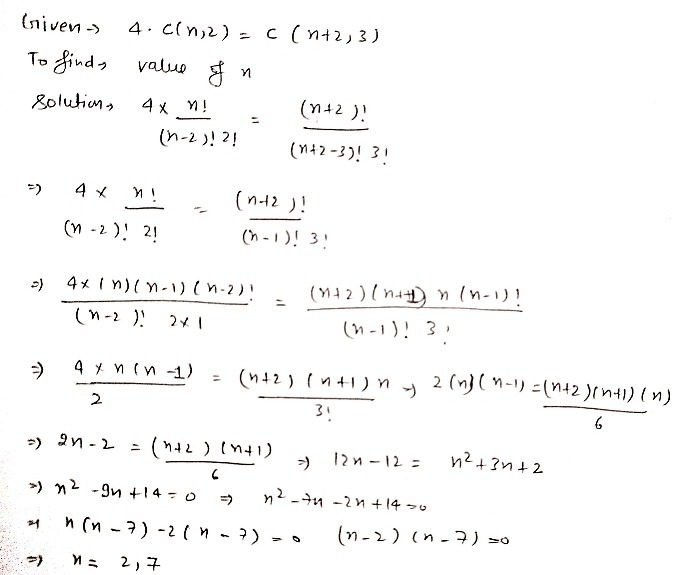 Given → 4 · C(n,2) = C (n+2,3)
To find → value of n
Solution → 4 × n! / (n-2)! 2! = (n+2)! / (n+2-3)! 3!
⇒ 4 × n! / (n-2)! 2! = (n+2)! / (n-1)! 3!
⇒ 4×(n)(n-1)(n-2)! / (n-2)! 2×1 = (n+2)(n+1) n (n-1)! / (n-1)! 3!
⇒ 4 × n(n-1) / 2 = (n+2)(n+1)n / 3! → 2(n)(n-1) = (n+2)(n+1)(n) / 6
⇒ 2n-2 = (n+2)(n+1) / 6 ⇒ 12n-12 = n²+3n+2
⇒ n²-9n+14=0 ⇒ n²-7n-2n+14=0
⇒ n(n-7)-2(n-7)=0 (n-2)(n-7)=0
⇒ n= 2,7